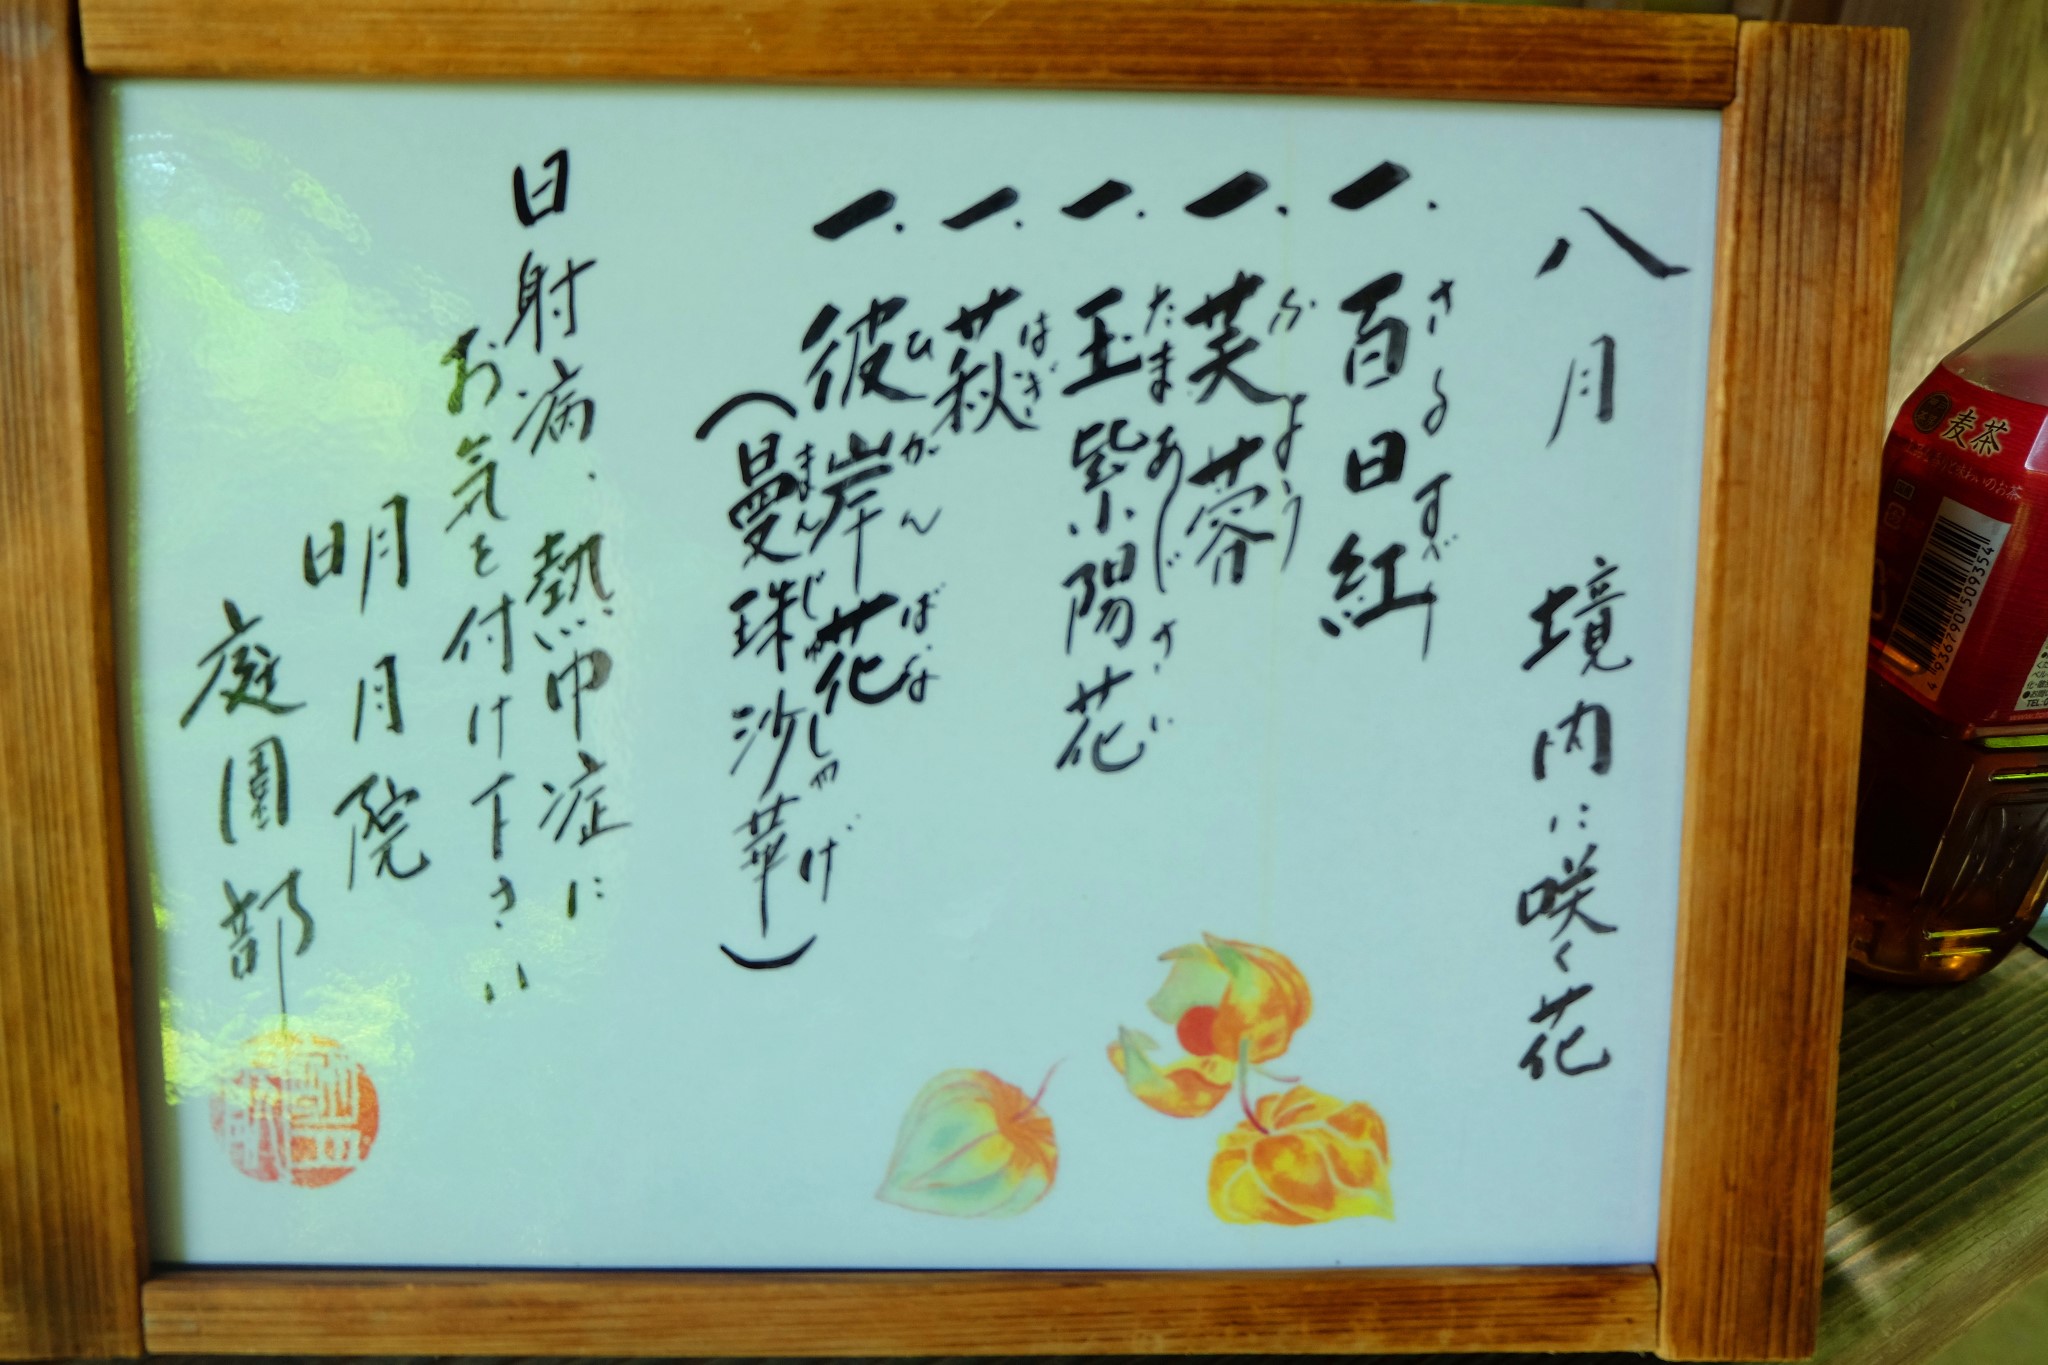 八月 境内に咲く花
一.百日紅
さるすべり
一.芙蓉
ふよう
一.玉紫陽花
たまあじさい
一.萩
はぎ
一.彼岸花
ヒガンばな
(曼珠沙華)
まんじゅしゃげ
日射病、熱中症に
お気を付け下さい
明月院
庭園部
麦茶
4936790509354